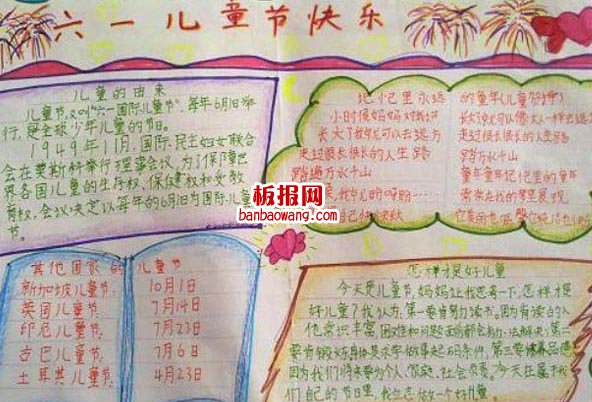 六一儿童节快乐
儿童的由来
儿童节,又叫“六一国际儿童节”,每年6月1日举
行,是全球少年儿童的节日。
1949年11月,国际民主妇女联合
会在莫斯科举行理事会议,为了保障世
界各国儿童的生存权,保健权和受教
育权,会议决定以每年的6月1日为国际儿童
节。
记忆里永远
的童年(儿童节诗)
小时候妈妈对我讲
走过很长很长的人生路
踏遍万水千山
走过很长很长的人生路
踏遍万水千山
板报网
banbaowang.com
其他国家的儿童节
新加坡儿童节: 10月1日
英国儿童节: 7月14日
印尼儿童节: 7月23日
古巴儿童节: 7月6日
土耳其儿童节: 4月23日
怎样才是好儿童
今天是儿童节,妈妈让我思考一下,怎样才是
好儿童?我认为:第一要肯努力读书,因为有读书的人
他常识丰富,困难和问题面前都会有办法解决;第二
要锻炼好身体是求学做事起码条件,第三要修养品德
因为我们将来要为个人、家庭、社会负责。今天在属于我
们自己的节日里,我立志做一个好儿童。